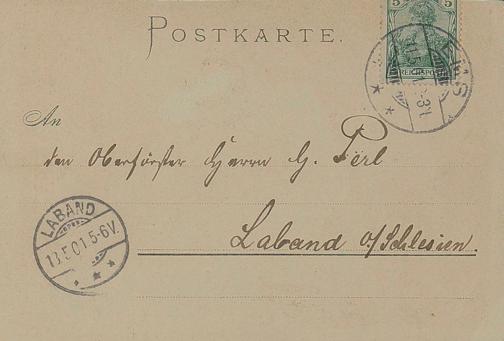 POSTKARTE.
5 5
REICHSPOST
EMS
An
den Oberförster Herrn G. Perl
LABAND
13.5.01.5-6V.
Laband o/Schlesien.